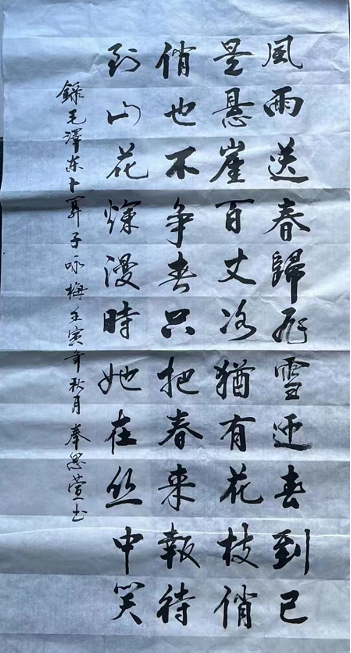 風雨送春歸飛雪迎春到已
是悬崖百丈冰猶有花枝俏
俏也不争春只把春来報待
到山花爛漫時她在丛中笑
録毛澤东卜算子咏梅壬寅年秋月萱书